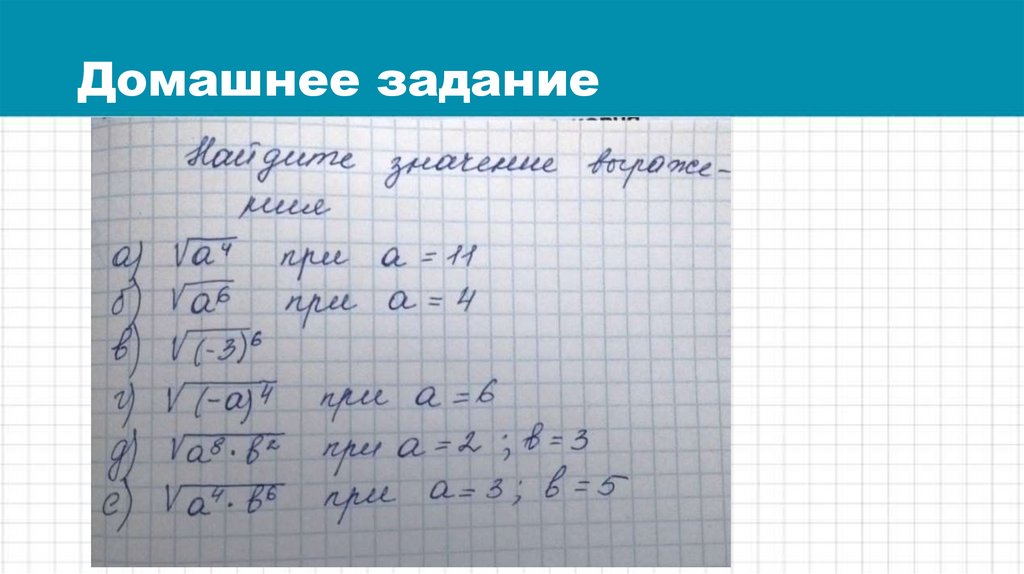 Домашнее задание
Найдите значение выраже-
ния
а) √a⁴ при a = 11
б) √a⁶ при a = 4
в) √(-3)⁶
г) √(-a)⁴ при a = 6
д) √a⁸ · b² при a = 2 ; b = 3
е) √a⁴ · b⁶ при a = 3 ; b = 5